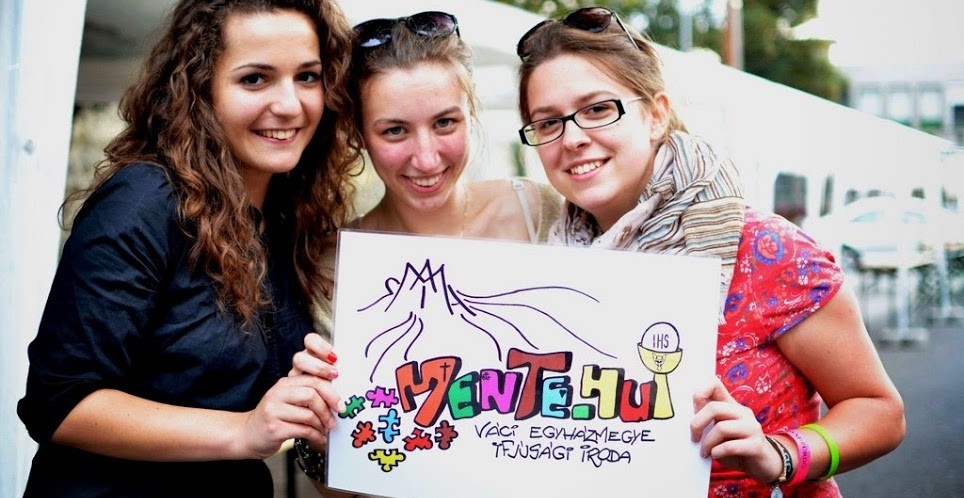 IHS
MENTE.HU
VÁCI EGYHÁZMEGYE
IFJÚSÁGI IRODA